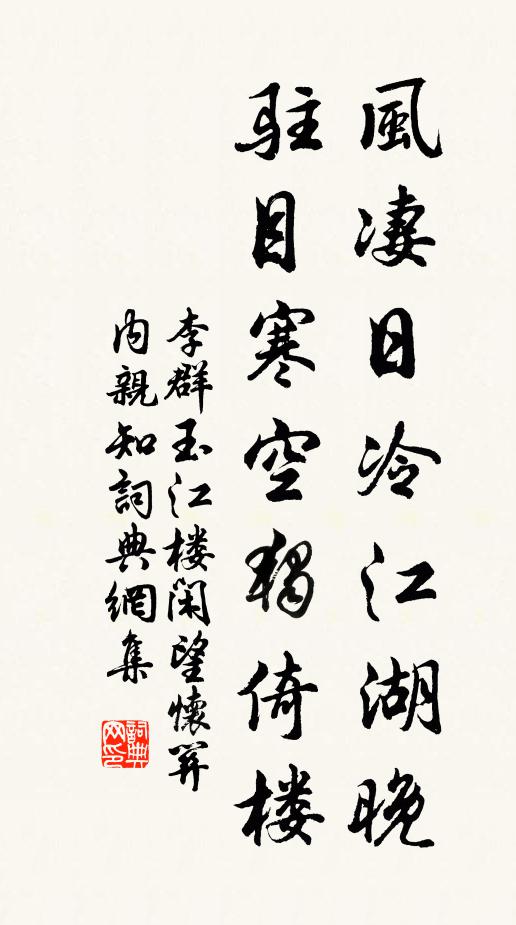 風凄日冷江湖晚
駐目寒空獨倚楼
李群玉江楼閑望懷關
内親知詞典網集
詞典网印